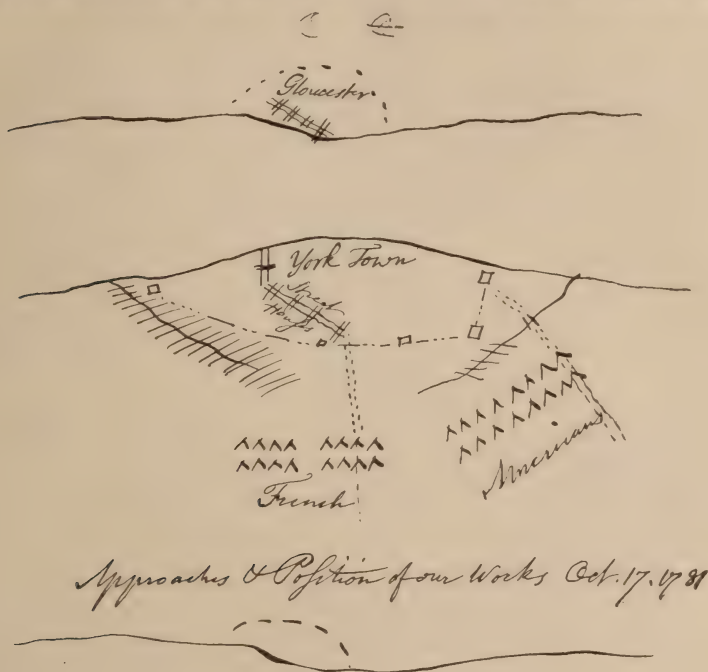 Gloucester
York Town
Street
Houses
French
Americans
Approaches & Position of our Works Oct. 17. 1781